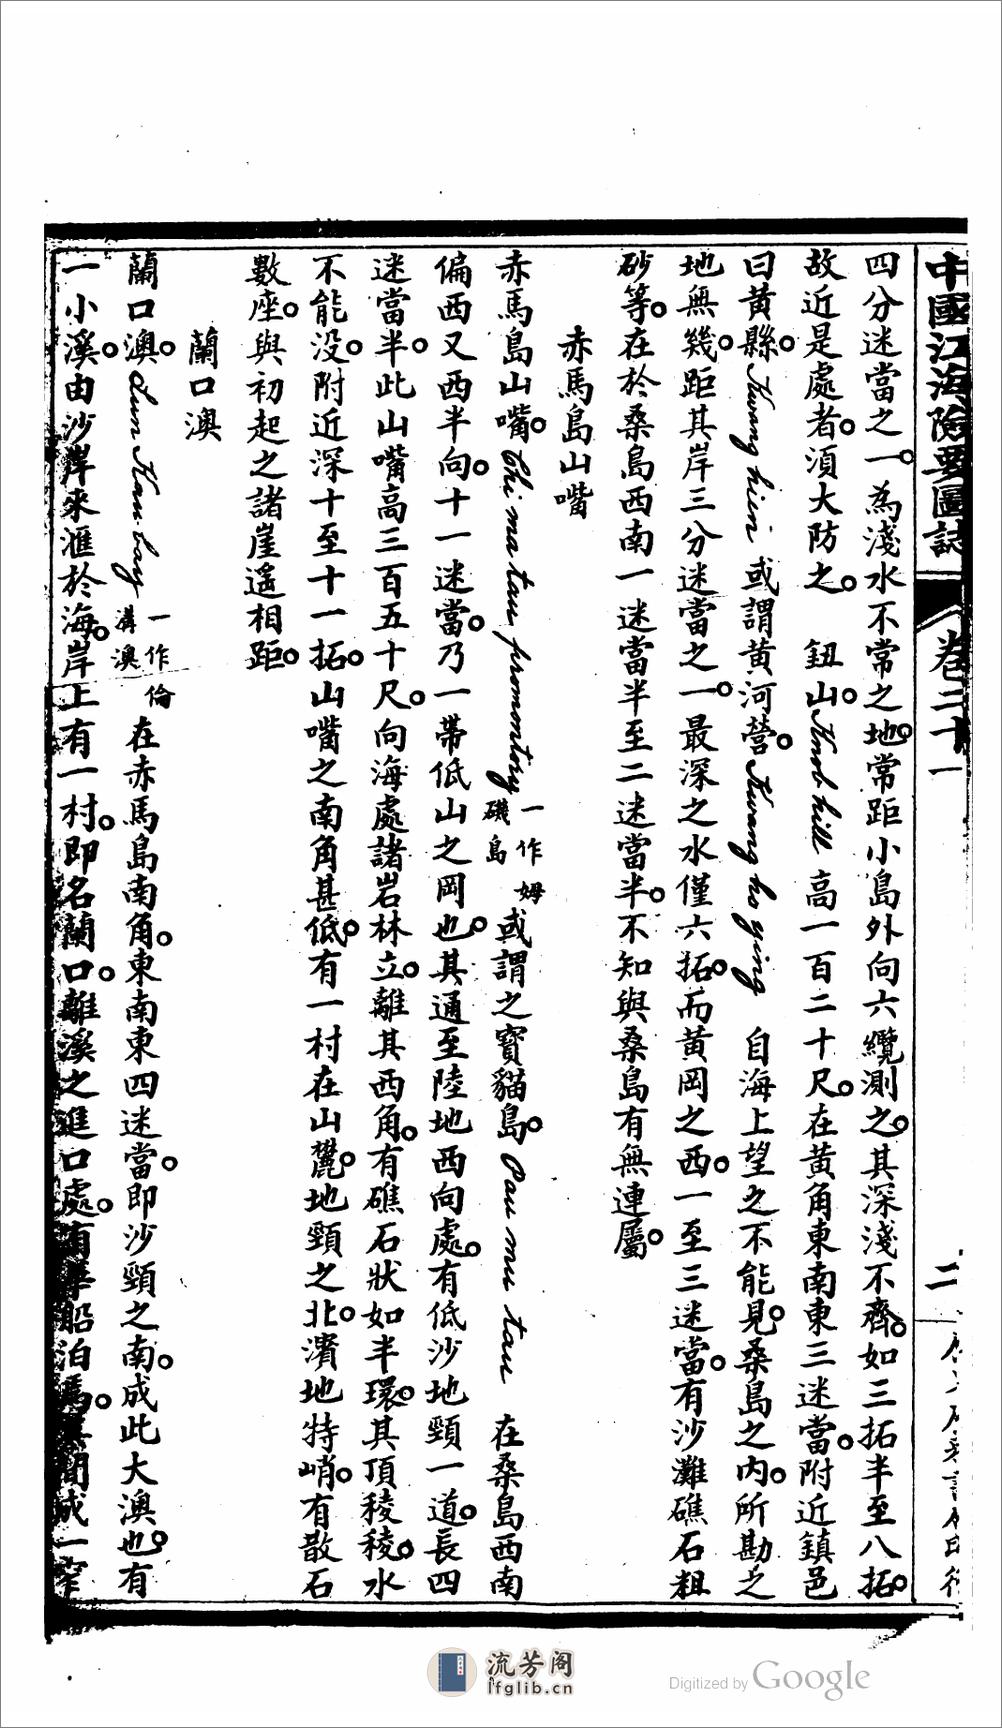 中國江海險要圖誌
卷二十一
二
四分迷當之一。為淺水不常之地。常距小島外向六纜測之。其深淺不齊。如三拓半至八拓。
故近是處者。須大防之。 鈕山。Knob hill 高一百二十尺。在黃角東南東三迷當。附近鎮邑
曰黃縣。Kwang hien 或謂黃河營。Kwang ho ying 自海上望之不能見。桑島之內。所勘之
地無幾。距其岸三分迷當之一。最深之水僅六拓。而黃岡之西。一至三迷當。有沙灘礁石粗
砂等。在於桑島西南一迷當半至二迷當半。不知與桑島有無連屬。
赤馬島山嘴
赤馬島山嘴。Chi ma tau promontory 一作姆磯島 或謂之寶貓島。Pau mu tau 在桑島西南
偏西又西半向。十一迷當。乃一帶低山之岡也。其通至陸地西向處。有低沙地頸一道。長四
迷當半。此山嘴高三百五十尺。向海處諸岩林立。離其西角。有礁石狀如半環。其頂稜稜。水
不能没。附近深十至十一拓。山嘴之南角甚低。有一村在山麓。地頸之北。濱地特峭。有散石
數座。與初起之諸崖遥相距。
蘭口澳
蘭口澳。Lun Kau bay 一作倫溝澳 在赤馬島南角。東南東四迷當。即沙頸之南。成此大澳也。有
一小溪。由沙岸來滙於海。岸上有一村。即名蘭口。離溪之進口處。有華船泊焉。其間成一窄
流芳阁
lfglib.cn
Digitized by Google